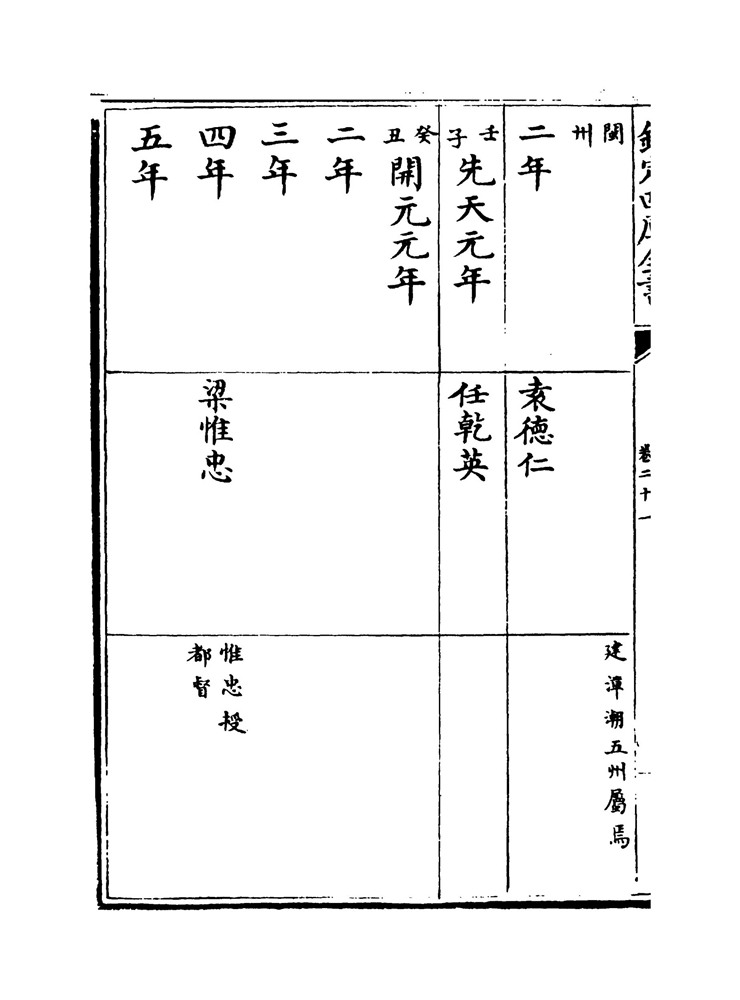 欽定四庫全書
卷二十一
閩
州
建漳潮五州屬焉
二年
袁德仁
壬
子
先天元年
任乾英
癸
丑
開元元年
二年
三年
四年
梁惟忠
惟忠授
都督
五年